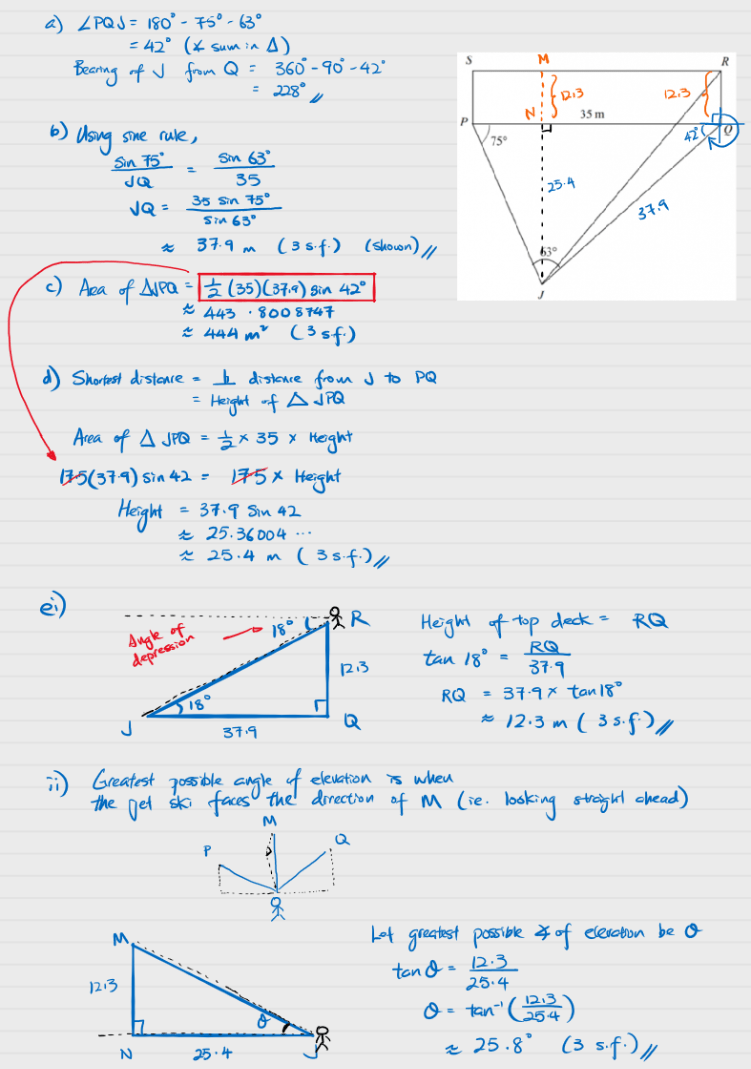 a) ∠PQJ = 180° - 75° - 63°
= 42° (∡ sum in Δ)
Bearing of J from Q = 360° - 90° - 42°
= 228°
b) Using sine rule,
sin 75° / JQ = sin 63° / 35
JQ = 35 sin 75° / sin 63°
≈ 37.9 m (3 s.f.) (shown)
c) Area of ΔJPQ = ½ (35)(37.9) sin 42°
≈ 443.8008747
≈ 444 m² (3 s.f.)
d) Shortest distance = ⊥ distance from J to PQ
= Height of Δ JPQ
Area of Δ JPQ = ½ × 35 × Height
17.5(37.9) sin 42 = 17.5 × Height
Height = 37.9 sin 42
≈ 25.36004 ...
≈ 25.4 m (3 s.f.)
S
M
R
12.3
12.3
N
35 m
P
75°
42°
Q
25.4
37.9
63°
J
ei)
Angle of
depression
18°
R
12.3
18°
J
37.9
Q
Height of top deck = RQ
tan 18° = RQ / 37.9
RQ = 37.9 × tan 18°
≈ 12.3 m (3 s.f.)
ii) Greatest possible angle of elevation is when
the jet ski faces the direction of M (ie. looking straight ahead)
M
P
Q
M
12.3
θ
N
25.4
J
Let greatest possible ∡ of elevation be θ
tan θ = 12.3 / 25.4
θ = tan⁻¹ (12.3 / 25.4)
≈ 25.8° (3 s.f.)